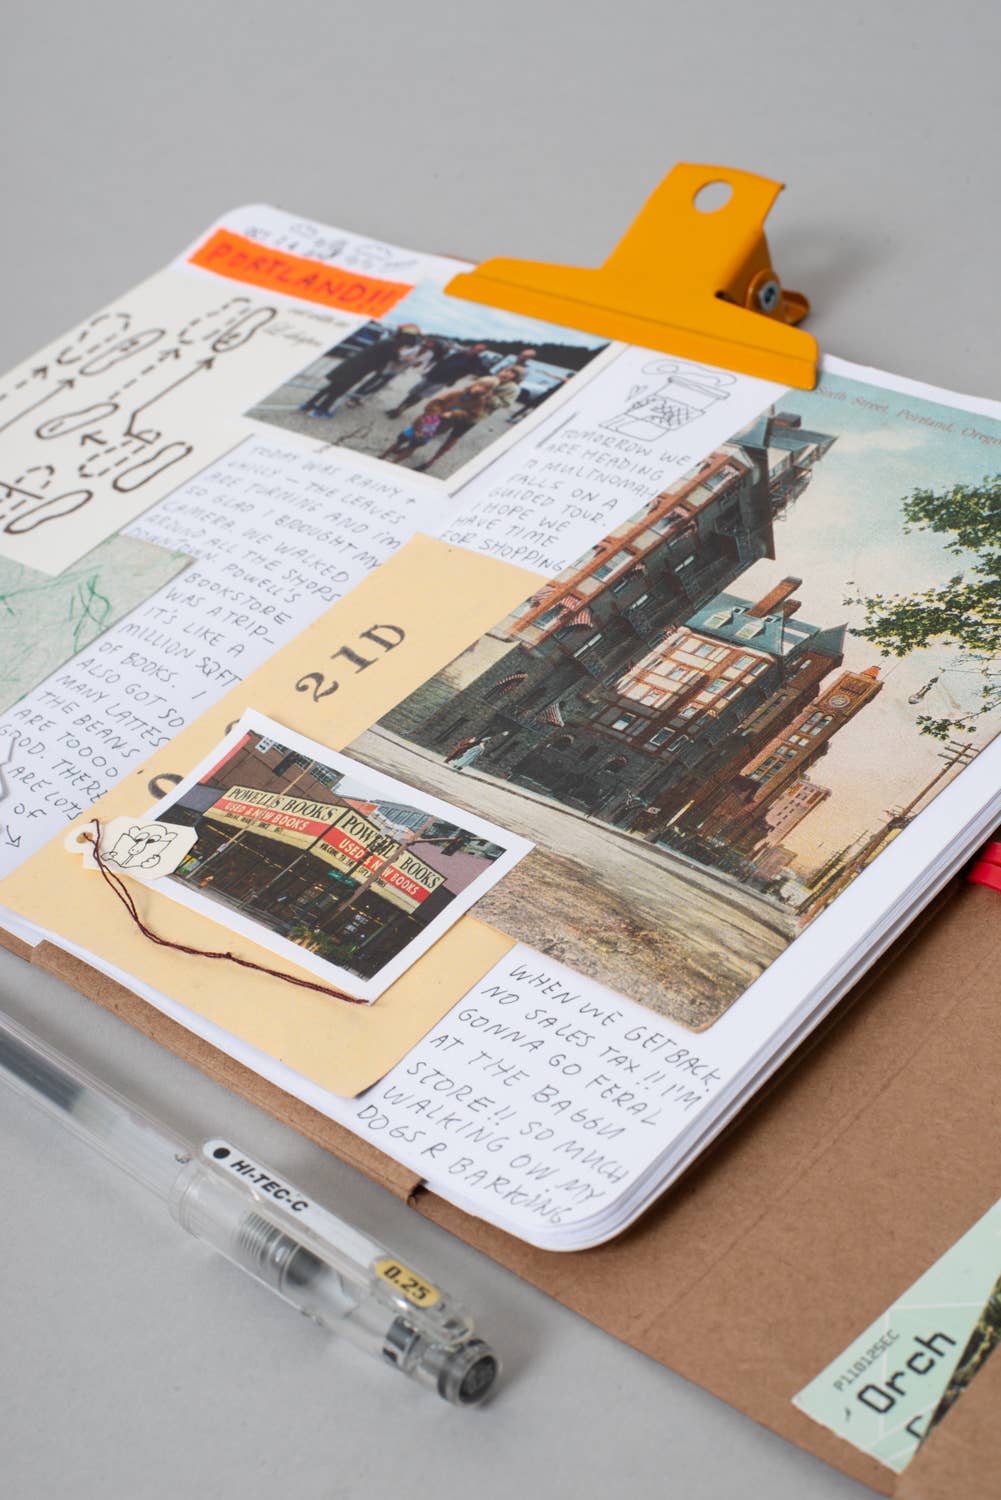 PORTLAND!!
TODAY WAS RAINY +
CHILLY — THE LEAVES
ARE TURNING AND I'M
SO GLAD I BROUGHT MY
CAMERA. WE WALKED
AROUND ALL THE SHOPS
DOWNTOWN. POWELL'S
BOOKSTORE
WAS A TRIP—
IT'S LIKE A
MILLION SQFT
OF BOOKS. I
ALSO GOT SO
MANY LATTES
THE BEANS
ARE TOOOO
GOOD. THERE
ARE LOTS
OF
TOMORROW WE
ARE HEADING
TO MULTNOMAH
FALLS ON A
GUIDED TOUR.
I HOPE WE
HAVE TIME
FOR SHOPPING
Sixth Street, Portland, Orego
21D
POWELL'S BOOKS
USED & NEW BOOKS
POWELL'S BOOKS
USED & NEW BOOKS
WHEN WE GET BACK
NO SALES TAX!! I'M
GONNA GO FERAL
AT THE BAGGU
STORE!! SO MUCH
WALKING OW MY
DOGS R BARKING
HI-TEC-C
0.25
P11012SEC
Orch